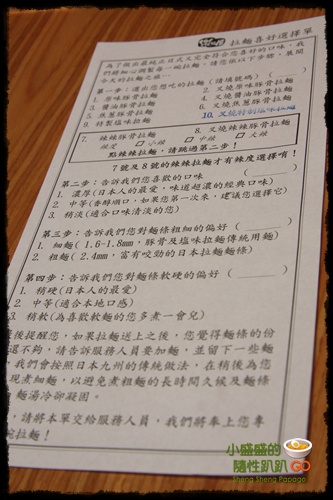 拉麵喜好選擇單
為了做出最純正日式又完全符合您喜好的口味，我
們將細心調製每一碗拉麵，請您依以下步驟，展開
今天的拉麵之旅…
第一步：選出您想吃的拉麵（請填號碼）（　　）
1. 原味豚骨拉麵
2. 叉燒豚骨拉麵
3. 醬油豚骨拉麵
4. 叉燒醬油豚骨拉麵
5. 焦蔥豚骨拉麵
6. 叉燒焦蔥豚骨拉麵
9. 特製塩味拉麵
10. 叉燒特制塩味拉麵
7. 辣辣豚骨拉麵
8. 叉燒辣辣豚骨拉麵
□小辣
□中辣
□大辣
點辣辣拉麵，請跳過第二步！
7號及8號的辣辣拉麵才有辣度選擇唷！
第二步：告訴我們您喜歡的口味（　　）
1. 濃厚(日本人的最愛，味道超濃的經典口味)
2. 中等(香醇順口，如果您第一次來，建議您選擇它)
3. 稍淡(適合口味清淡的您)
第三步：告訴我們您對麵條粗細的偏好（　　）
1. 細麵(1.6-1.8mm，豚骨及塩味拉麵傳統用麵)
2. 粗麵(2.4mm，富有咬勁的日本拉麵麵條)
第四步：告訴我們您對麵條軟硬的偏好（　　）
1. 稍硬(日本人的最愛)
2. 中等(適合本地口感)
3. 稍軟(為喜歡軟麵的您多煮一會兒)
後提醒您，如果拉麵送上之後，您覺得麵條的份
還不夠，請告訴服務人員要加麵，並留下一些麵
我們會按照日本九州的傳統做法，在稍後為您
現煮細麵，以避免煮粗麵的長時間久候及麵條
麵湯冷卻凝固。
請將本單交給服務人員，我們將奉上您專
碗拉麵！
小盛盛的
隨性趴趴GO
Sheng Sheng Papago